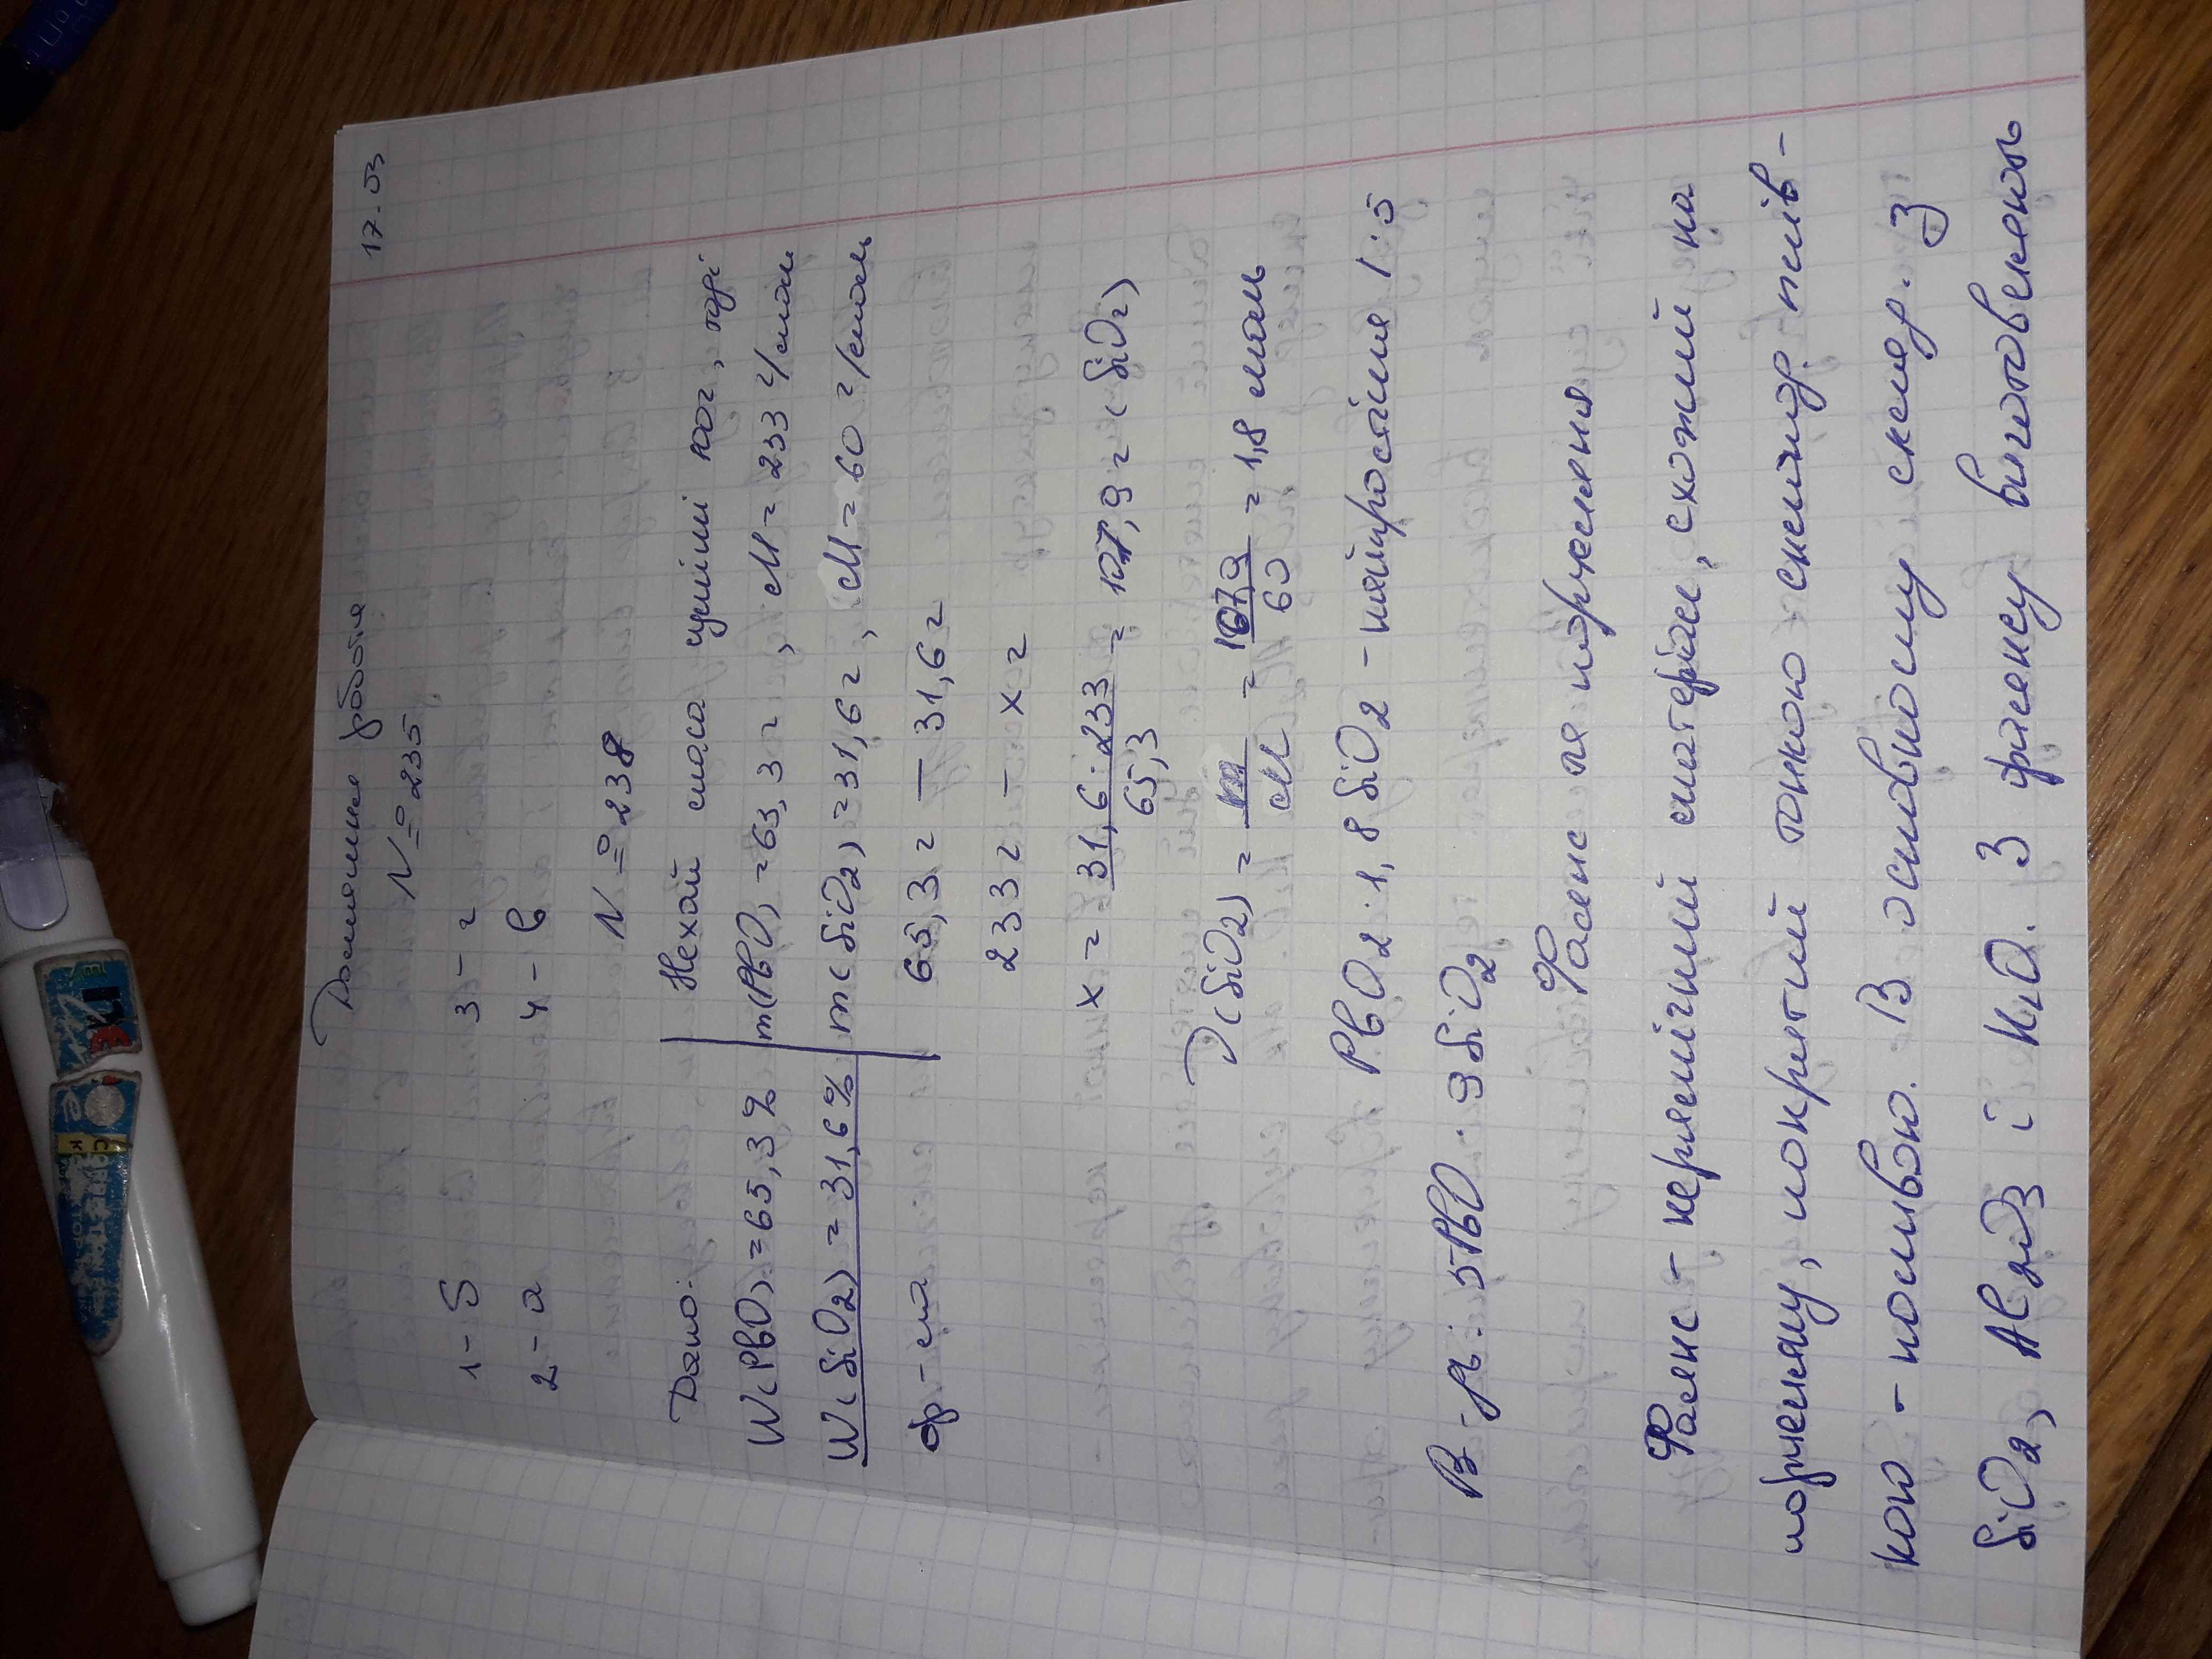 17.03
Домашня робота
№235
1 - б 3 - г
2 - а 4 - в
№238
Дано: Нехай маса суміші 100г, тоді
W(PbO) = 65,3% m(PbO) = 63,3г, M = 233 г/моль
W(SiO2) = 31,6% m(SiO2) = 31,6г, M = 60 г/моль
ф-ла 65,3г — 31,6г
233г — xг
x = 31,6·233 / 65,3 = 107,9г (SiO2)
(SiO2) = m / M = 107,9 / 60 = 1,8 моль
PbO2·1,8SiO2 - найпростіша 1:5
В-дь: 5PbO · 9SiO2
Фаянс та порцеляна
Фаянс - керамічний матеріал, схожий на
порцеляну, покритий тонкою склопод. плів-
кою - поливою. В основному склад. з
SiO2, Al2O3 і K2O. З фаянсу виготовляють